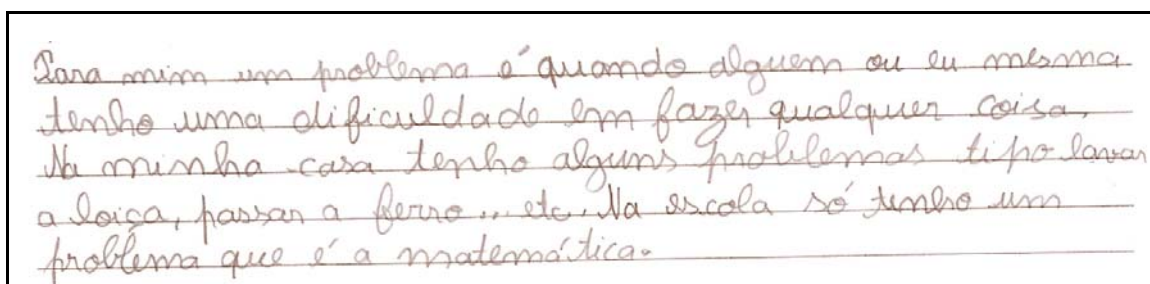 Para mim um problema é quando alguem ou eu mesma
tenho uma dificuldade em fazer qualquer coisa.
Na minha casa tenho alguns problemas tipo lavar
a loiça, passar a ferro... etc. Na escola só tenho um
problema que é a matemática.